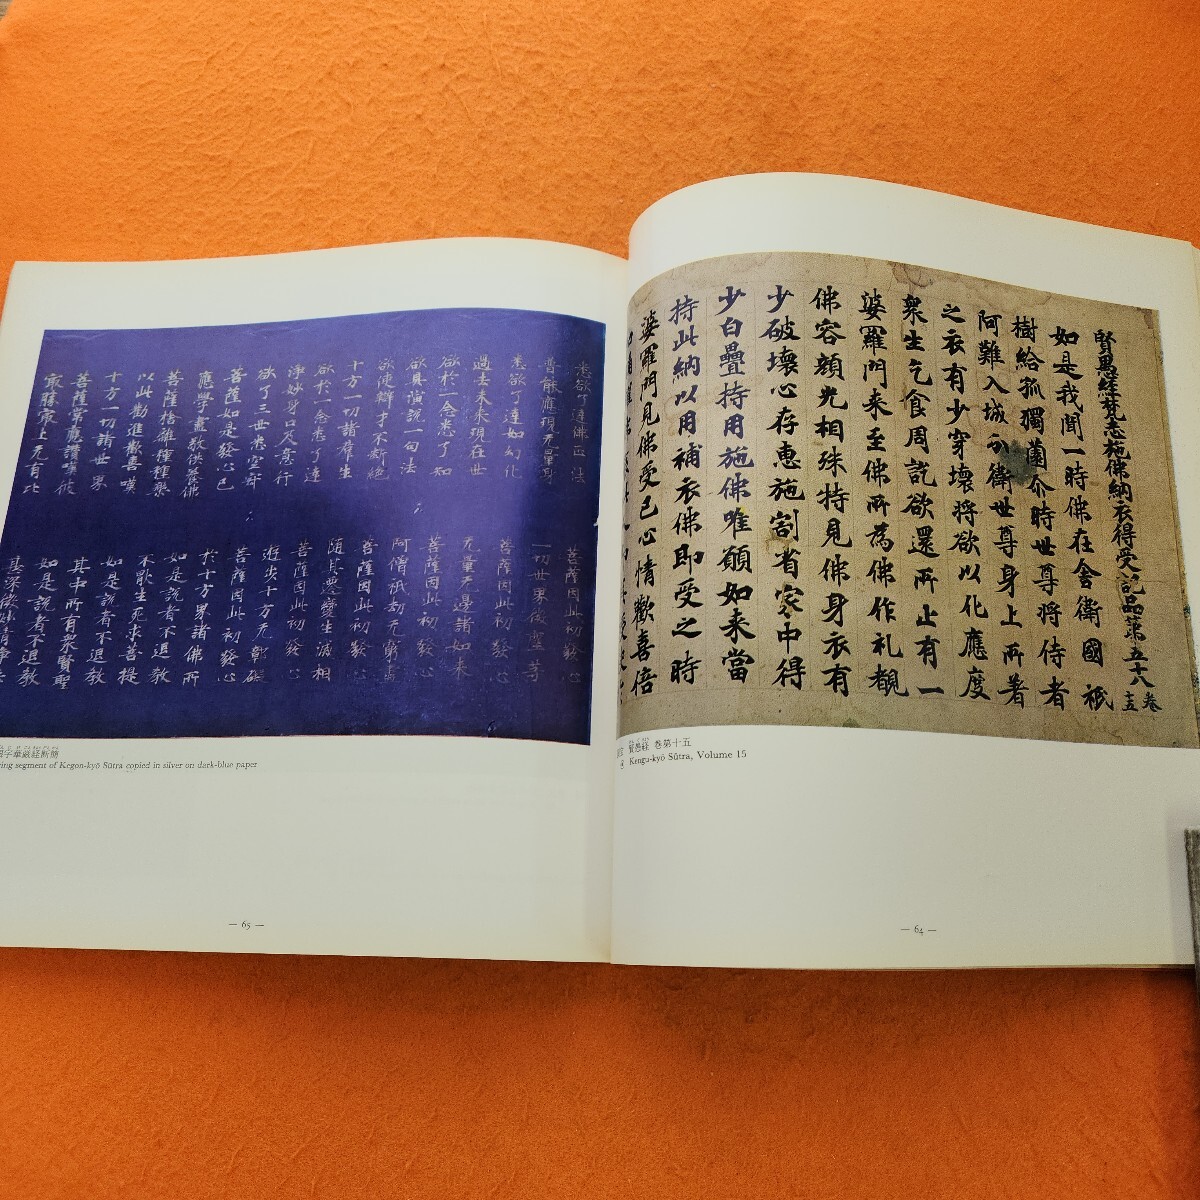 賢愚経梵志施佛納衣得受記品第五十八 卷十五
如是我聞一時佛在舍衛國祇
樹給孤獨園尒時世尊將侍者
阿難入城分衛世尊身上所著
之衣有少穿壞將欲以化應度
衆生乞食周訖欲還所止有一
婆羅門来至佛所為佛作礼覩
佛容顔光相殊特見佛身衣有
少破壞心存惠施割省家中得
少白疊持用施佛唯願如来當
持此納以用補衣佛即受之時
婆羅門見佛受已心情歡喜倍
賢愚経 巻第十五
Kengu-kyō Sūtra, Volume 15
— 64 —
悉欲了達佛正法 菩薩因此初發心
普能應現无量身 一切世界後聖
悉欲了達如幻化 菩薩因此初發心
過去未来現在世 无量无邊諸如来
欲於一念悉了知 菩薩因此初發心
欲具演說一句法 阿僧祇劫无窮
欲使辯才不斷絶 菩薩因此初發心
十方一切諸羣生 随其遷變生滅相
欲於一念悉了達 菩薩因此初發心
淨妙身口及意行 遊步十方无鄣礙
欲了三世悉空寂 菩薩因此初發心
菩薩如是發心已 於十方界諸佛所
應學盡敬供養佛 如是說者不退教
菩薩捨離種種樂 不厭生死求菩提
以此勸進歡喜嘆 如是說者不退教
十方一切諸世界 其中所有衆賢聖
菩薩常應讃嘆彼 如是說者不退教
最勝最上无有比 甚深微妙清淨法
字華厳経断簡
ing segment of Kegon-kyō Sūtra copied in silver on dark-blue paper
— 65 —